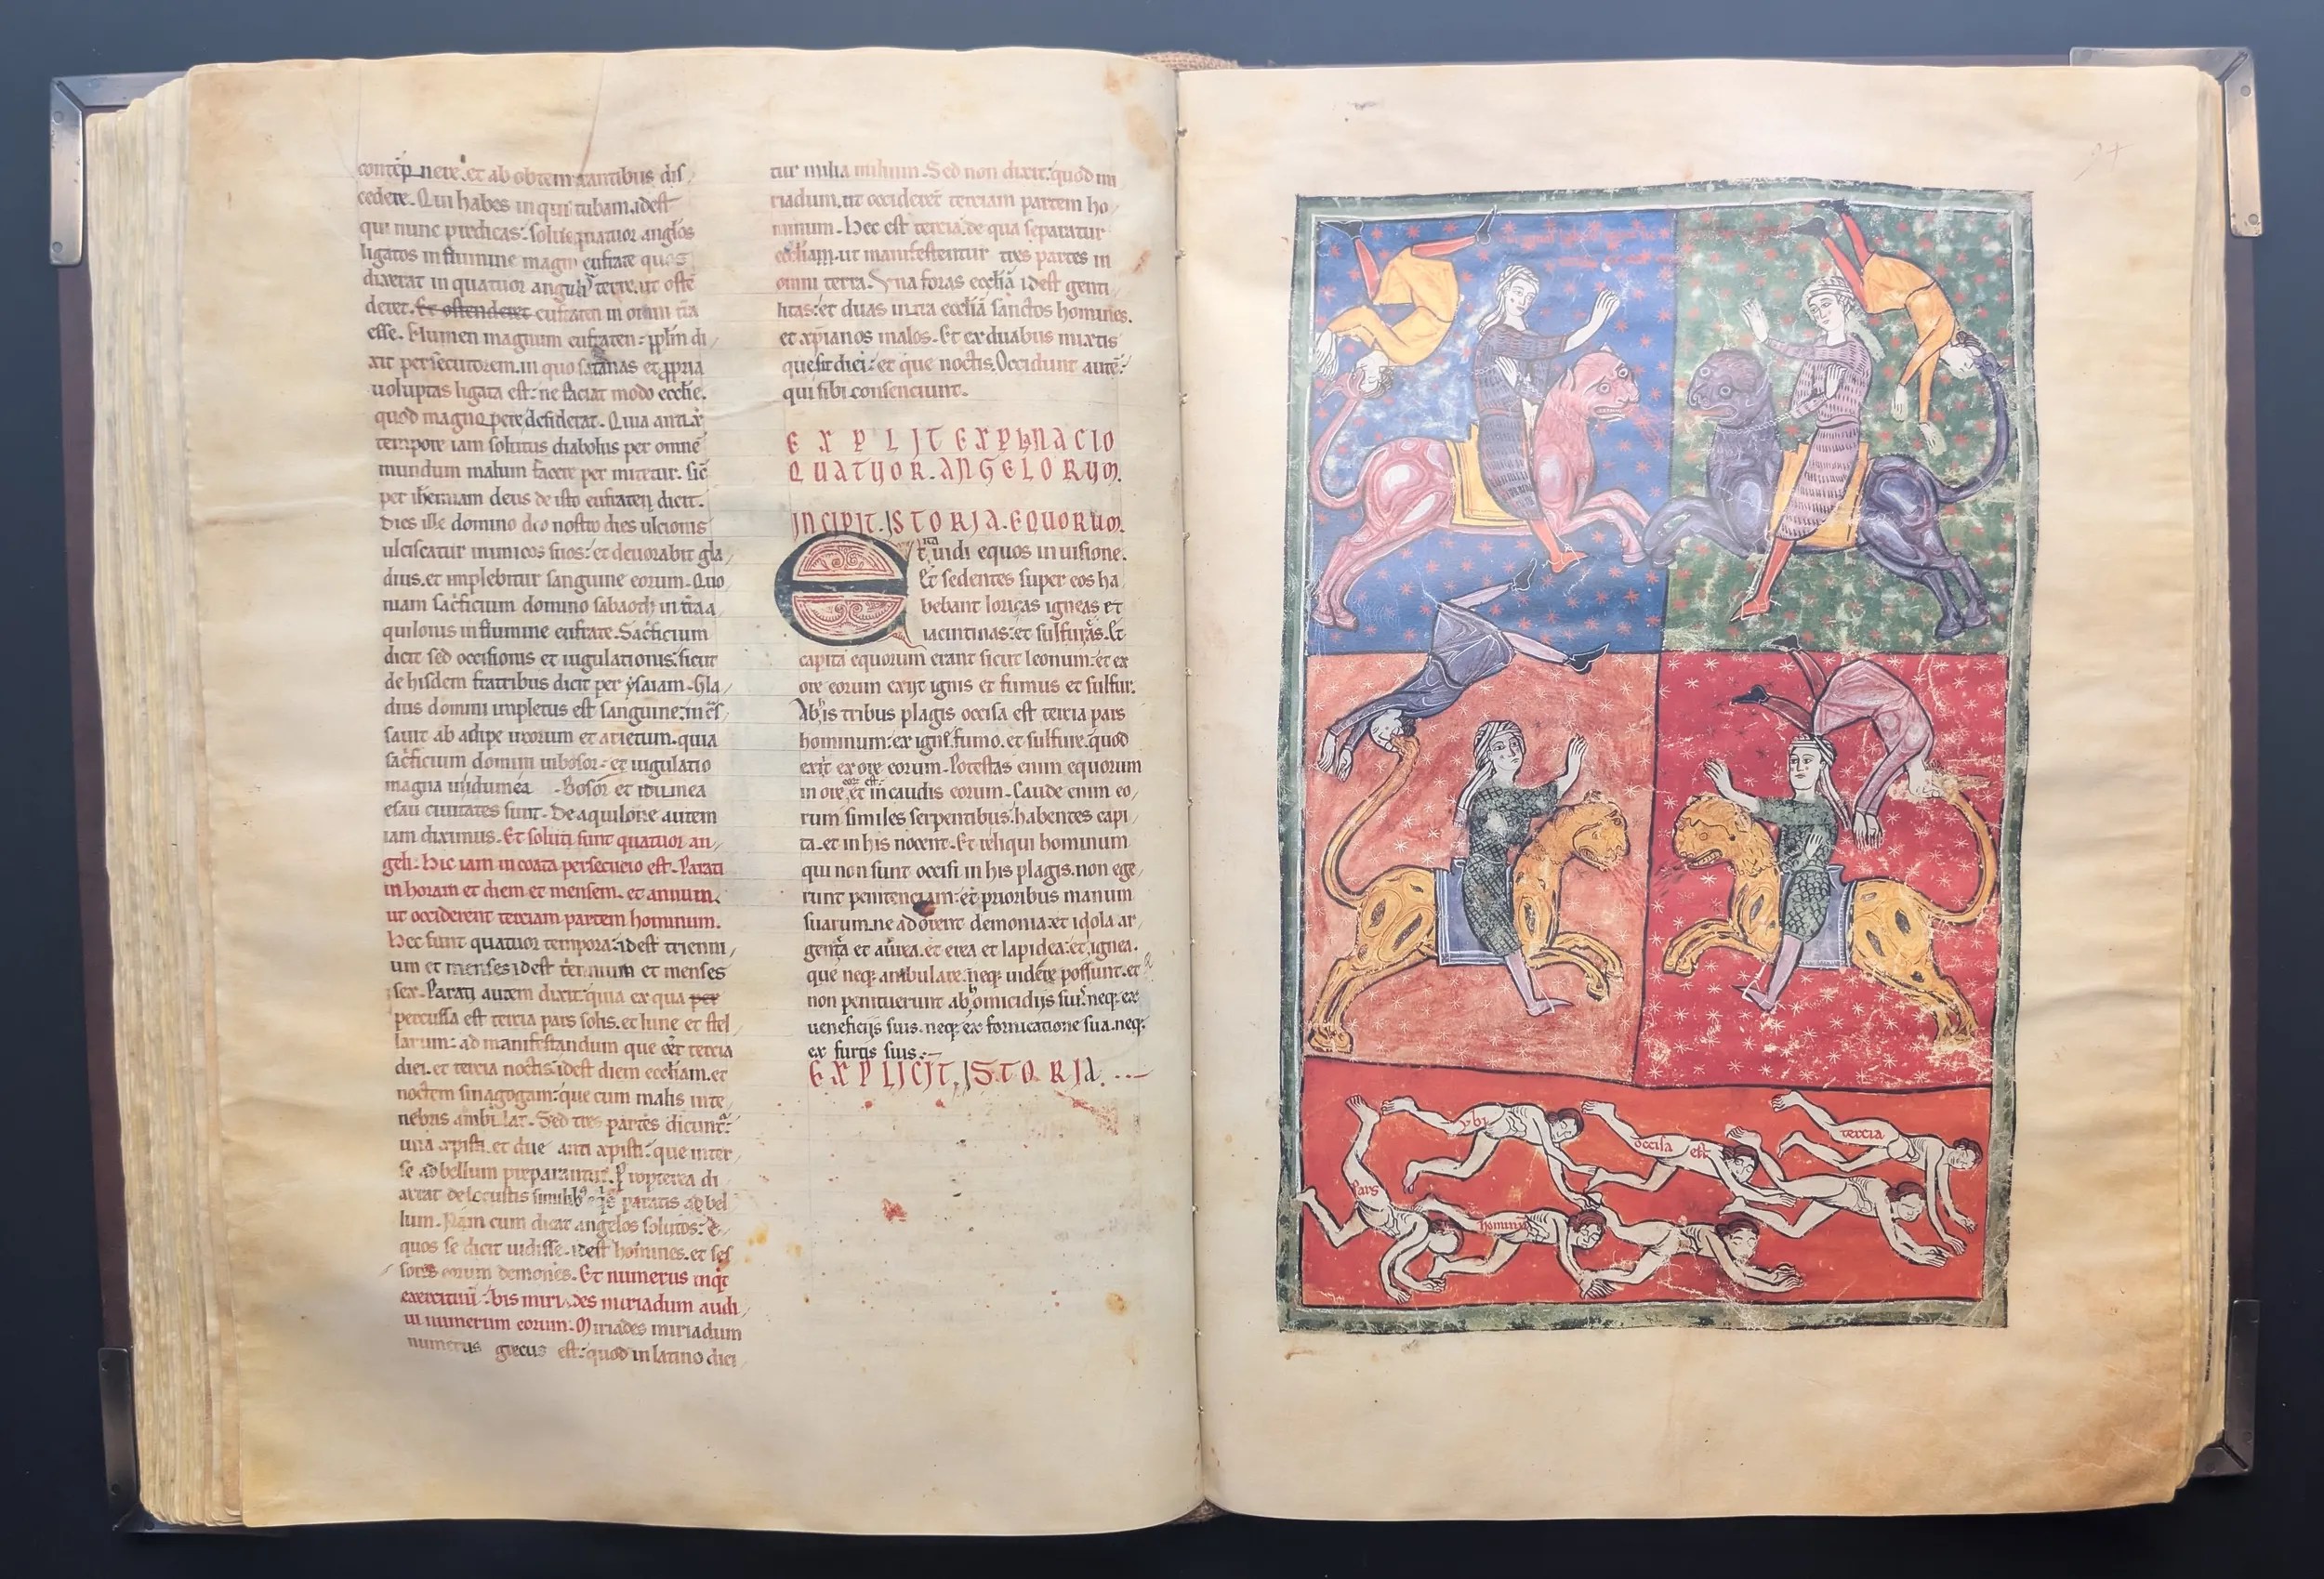 contēpnere. et ab obtemperantibus dis
cedere. Qui habes inquit tubam. idest
qui nunc predicas: solue quatuor anglos
ligatos in flumine magno eufrate quos
dixerat in quatuor angulis terre. ut oste
deret. Et ostenderet eufraten in omni tra
esse. Flumen magnum eufraten: pplm di
xit persecutorem. in quo satanas et ppria
voluptas ligata est: ne faciat modo ecclie.
quod magno pere desiderat. Quia anti xr
tempore iam solutus diabolus per omne
mundum malum facere per mitetur. sic
per iheremiam deus de isto eufraten dicit.
Dies ille domino deo nostro dies ulcionis
ulciscatur inimicos suos: et deuorabit gla
dius. et implebitur sanguine eorum. Quo
niam sacficium domino sabaoth in tra a
quilonis in flumine eufrate. Sacficium
dicit sed occisionis et iugulationis: sicut
de hisdem fratribus dicit per ysaiam. Gla
dius domini impletus est sanguine: incs
sauit ab adipe uxorum et arietum. quia
sacficium domini in bosor: et iugulatio
magna in idumea. Bosor et idumea
esau ciuitates sunt. De aquilone autem
iam diximus. Et soluti sunt quatuor an
geli. Hic iam incoata persecucio est. Parati
in horam et diem et mensem. et annum.
ut occiderent terciam partem hominum.
Hec sunt quatuor tempora: idest trienni
um et menses idest tennium et menses
sex. Parati autem dixit: quia ex qua per
percussa est tercia pars solis. et lune et stel
larum: ad manifestandum que eēt tercia
diei. et tercia noctis: idest diem eccliam. et
noctem sinagogam: que cum malis inte
nebris ambulat. Sed tres partes dicunt:
una xpisti. et due anti xpisti: que inter
se ad bellum preparantur. Propterea di
xerat de locustis similib equis paratis ad bel
lum. Nam cum dicat angelos solutos: e
quos se dicit uidisse. idest homines. et ses
sores eorum demones. Et numerus inqt
exercituū: bis miriades miriadum audi
ui numerum eorum. Miriades miriadum
numerus grecus est: quod in latino dici
tur milia milium. Sed non dixit: quod mi
riadum. ut occideret terciam partem ho
minum. Hec est tercia. de qua separatur
eccliam. ut manifestentur tres partes in
omni terra. Una foras ecclia idest genti
litas: et duas intra eccliā sanctos homines.
et xpianos malos. Et ex duabus mixtis
que sit diei: et que noctis. Occidunt autē:
qui sibi consenciunt.
EXPLIT EXPLANACIO
QUATUOR. ANGELORUM.
INCIPIT. ISTORIA. EQUORUM.
Et ita uidi equos in uisione.
Et sedentes super eos ha
bebant loricas igneas et
iacintinas: et sulfuras. Et
capita equorum erant sicut leonum: et ex
ore eorum exijt ignis et fumus et sulfur.
Ab his tribus plagis occisa est tercia pars
hominum: ex igne. fumo. et sulfure. quod
exijt ex ore eorum. Potestas enim equorum
in ore eor est. et in caudis eorum. Caude enim eo
rum similes serpentibus: habentes capi
ta. et in his nocent. Et reliqui hominum
qui non sunt occisi in his plagis. non ege
runt penitenciam: et prioribus manum
suarum. ne adorent demonia: et idola ar
gentea et aurea. et erea et lapidea: et ignea.
que neq: ambulare. neq: uidere possunt. et
non penituerunt ab homicidijs suis. neq: ex
ueneficijs suis. neq: ex fornicatione sua. neq:
ex furtis suis.
EXPLICIT, ISTORIA.
ybi
occisa est
tercia
pars
hominū